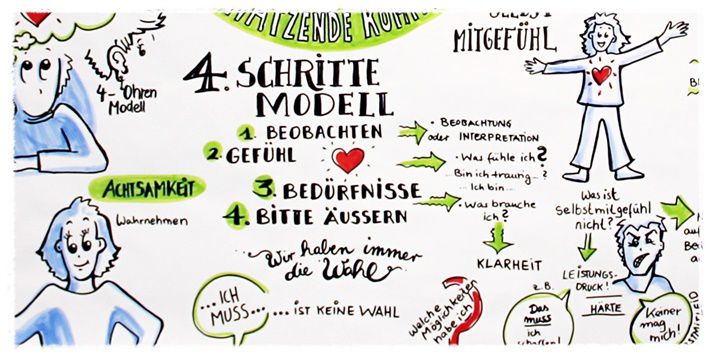 4-Ohren
Modell
4. SCHRITTE
MODELL
1. BEOBACHTEN
2. GEFÜHL
3. BEDÜRFNISSE
4. BITTE ÄUSSERN
• BEOBACHTUNG
oder INTERPRETATION
• Was fühle ich?
Bin ich traurig...?
... Ich bin...
• Was brauche
ich?
KLARHEIT
MITGEFÜHL
ACHTSAMKEIT
Wahrnehmen
Wir haben immer
die Wahl
...ICH
MUSS...
... IST KEINE WAHL
Welche
Möglichkeiten
habe ich
Was ist
Selbstmitgefühl
nicht?
LEISTUNGS-
DRUCK!
HÄRTE
z.B.
Das
muss
ich
Keiner
mag
mich!